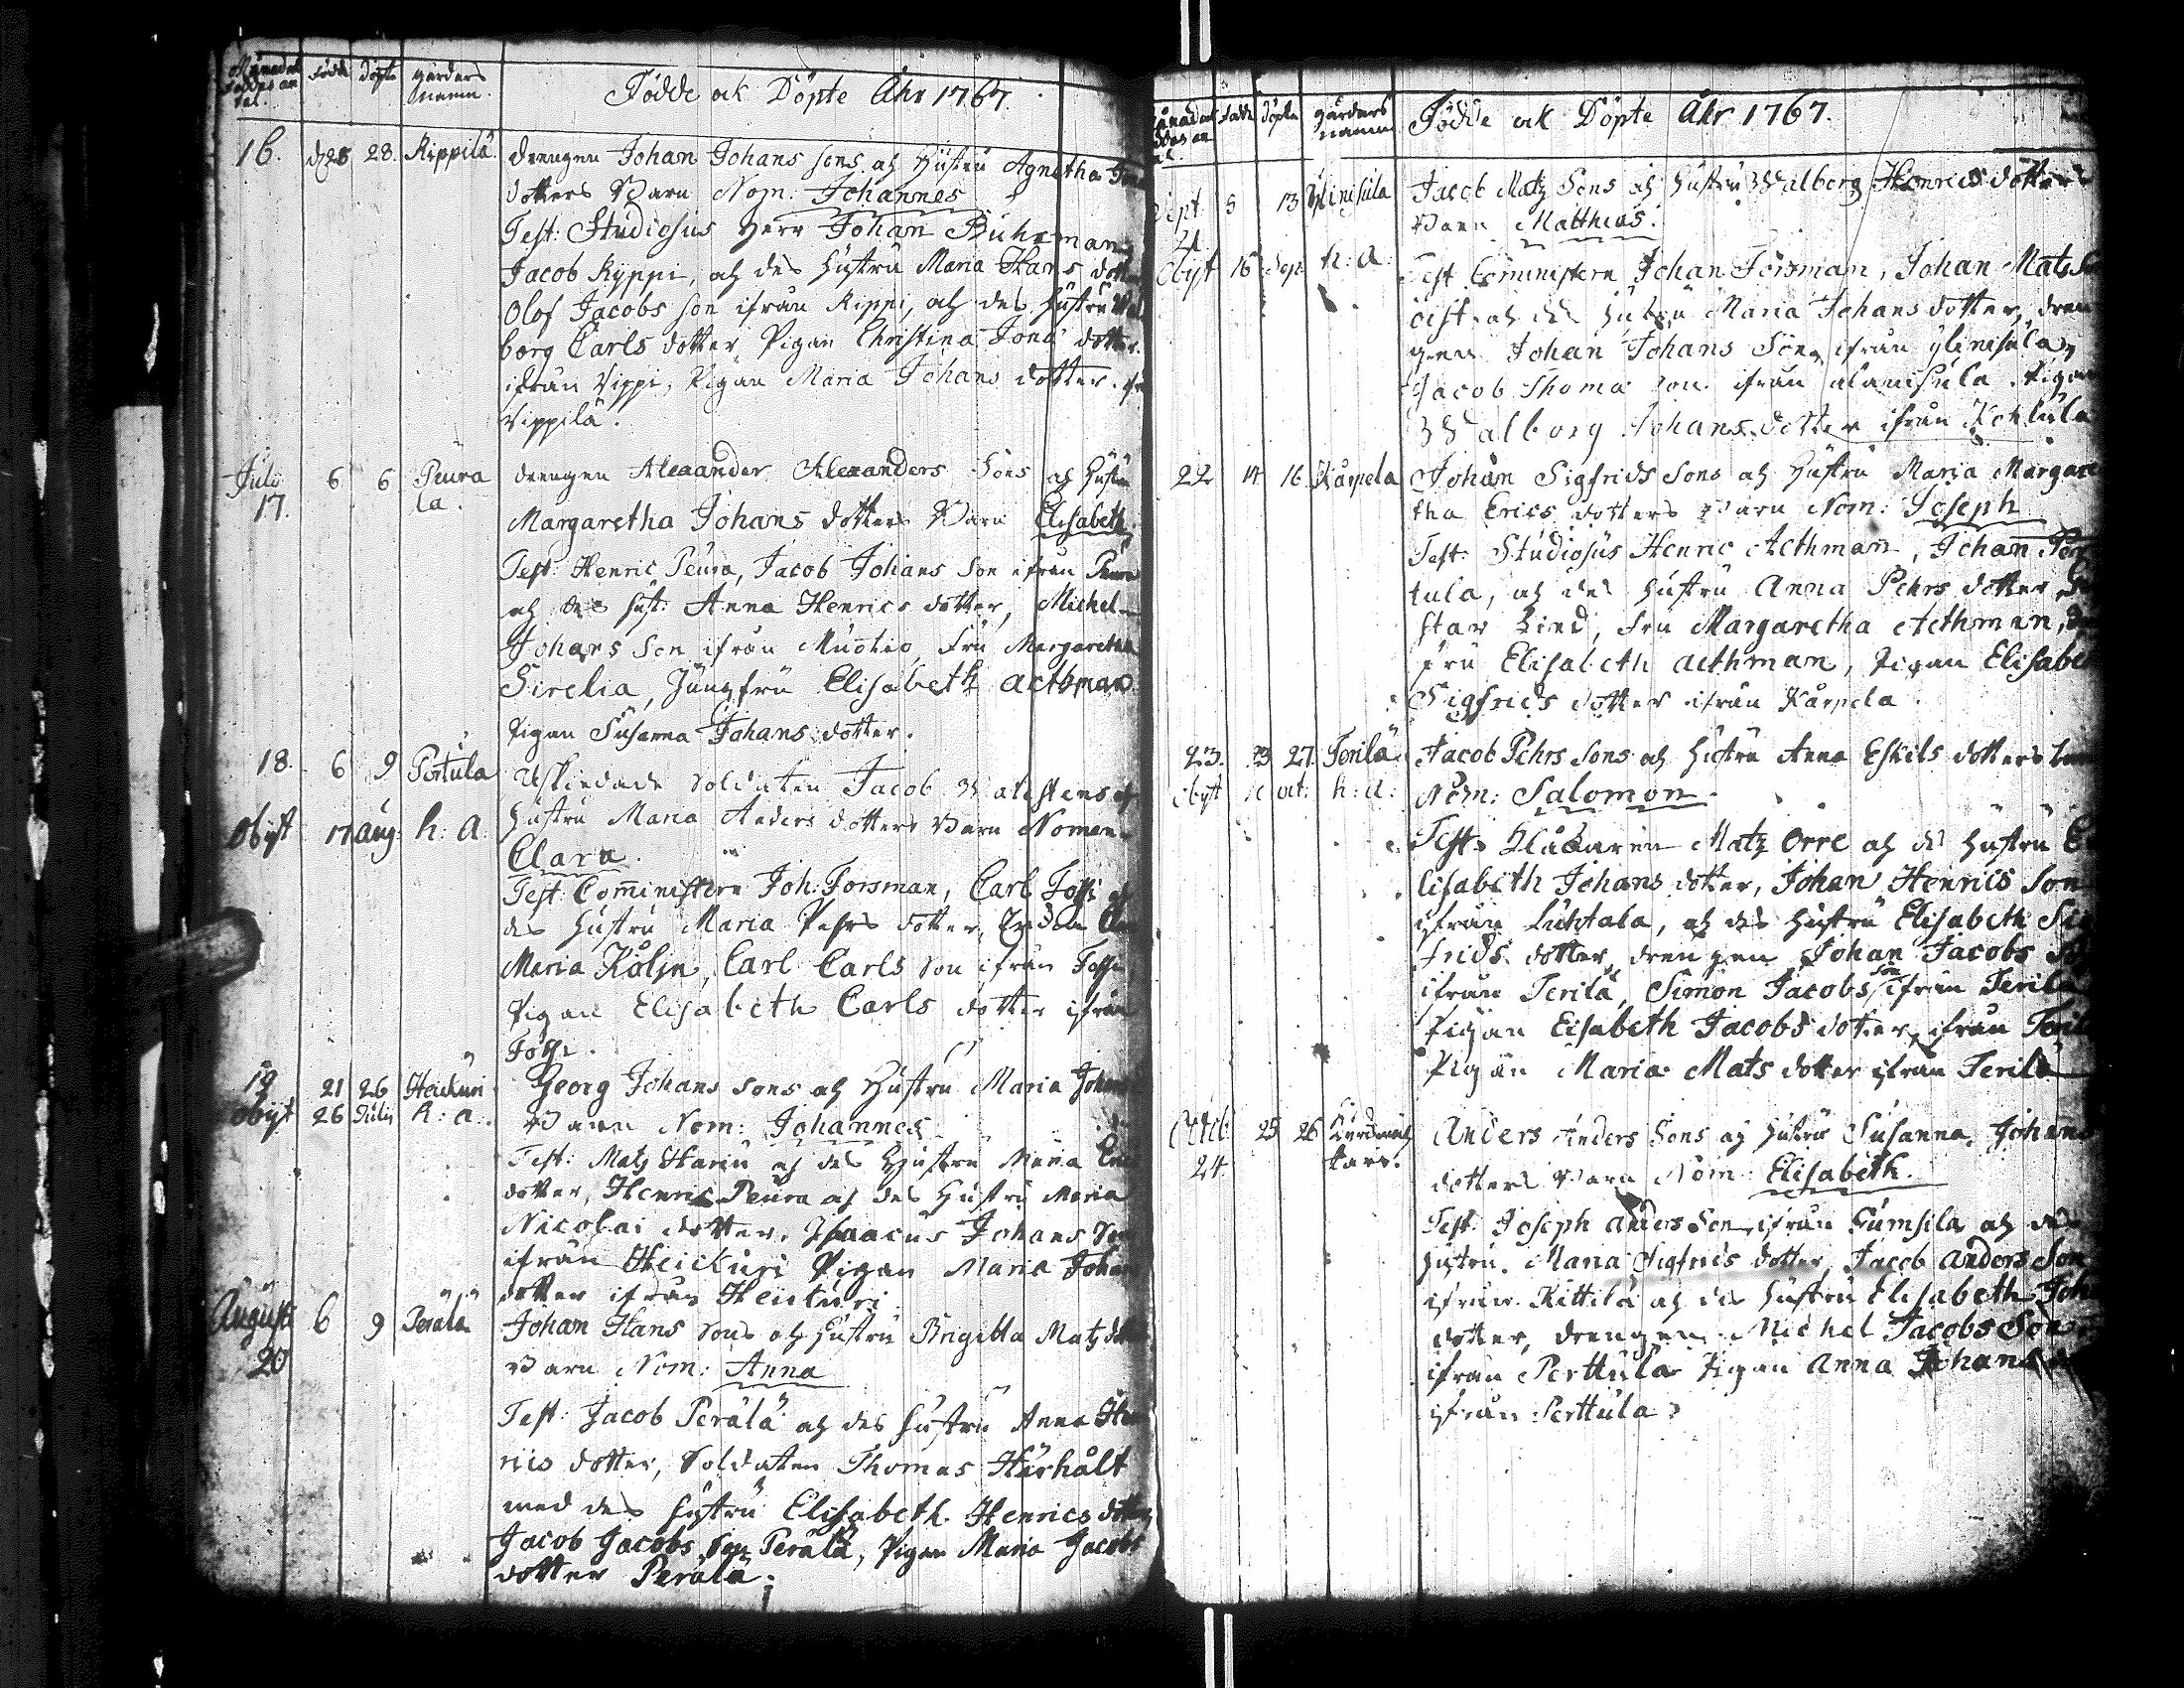 Månadet
Föddes an
tal.
Födde
döpte
gårders
namn.
Födde ock Döpte Åhr 1767.
16. d 28 28. Rippilä. drengen Johan Johans sons och Hustru Agnetha
dotters Barn Nom: Johannes
Test: Studiosus Herr Johan Buhrman
Jacob Ryppi, och des Hustru Maria Hans dotter
Olof Jacobs son ifrån Rippi, och des Hustru Wal
borg Carls dotter, Pigan Christina Jona dotter.
ifrån Rippi, Pigan Maria Johans dotter.
Rippilä.
Julii 6 6 Peura drengen Alexander Alexanders Sons och Hustru
17. la.
Margaretha Johans dotters Barn Elisabeth.
Test: Henric Peura, Jacob Johans Son ifrån Peura
och des hust: Anna Henrics dotter, Michel
Johans Son ifrån Muotio, Fru Margaretha
Sirelia, Jungfru Elisabeth Aethman
Pigan Susanna Johans dotter.
18. 6 9 Pertula Afskiedade Soldaten Jacob och
Obijt 17 aug: h: a: Hustru Maria Anders dotters Barn Nomen
Clara.
Test: Comministern Joh: Forsman, Carl
des Hustru Maria Pehrs dotter,
Maria Carl Carls son ifrån
Pigan Elisabeth Carls dotter ifrån
19 21 26 Heickuri Georg Johans sons och Hustru Maria
Obijt 26 Julii h: a: Barn Nom: Johannes
Test: Matz Harju och des Hustru Maria
dotter, Henric Peura och des Hustru Maria
Nicolai dotter, Isaacus Johans Son
ifrån Heickuri Pigan Maria Johans
dotter ifrån Heickuri.
Augusti 6 9 Perälä Johan Hans Sons och Hustru Brigitta Matz
20 Barn Nom: Anna
Test: Jacob Perälä och des Hustru Anna Hen
rics dotter, Soldaten Thomas Hårhålt
med des Hustru Elisabeth Henrics dotter
Jacob Jacobs Son Perälä, Pigan Maria Jacobs
dotter Perälä.
Födde
döpte
gårders
namn
Födde ock Döpte Åhr 1767.
Sept. 5 13 Ylinisula Jacob Matz Sons och Hustru Walborg Henrics dotters
21 Barn Matthias.
Obijt 16 Sept. h: a: Test Comministern Johan Forsman, Johan Mats
och des Hustru Maria Johans dotter, dren
gen Johan Johans Son ifrån Ylinisula,
Jacob Thoma son ifrån alanisula. Pigan
Walborg Johans dotter ifrån
22 14 16. Kårpela Johan Sigfrids Sons och Hustru Maria Margare
tha Erics dotters Barn Nom: Joseph
Test: Studiosus Henric Aethman, Johan
tula, och des Hustru Anna Pehrs dotter,
Fru Margaretha Aethman,
fru Elisabeth aethman, Pigan Elisabeth
Sigfrids dotter ifrån Kårpela.
23. 23 27. Terilä Jacob Pehrs Sons och Hustru Anna Eskils dotters
Obijt oct: h: a: Nom: Salomon.
Test: Klåckaren Matz Orre och des Hustru E
lisabeth Johans dotter, Johan Henrics Son
ifrån Luhtala, och des Hustru Elisabeth Sig
frids dotter, drengen Johan Jacobs
ifrån Terilä, Simon Jacobs son ifrån Terilä
Pigan Elisabeth Jacobs dotter ifrån
Pigan Maria Mats dotter ifrån Terilä
Octob: 25 26 Anders Anders Sons och Hustru Susanna Johans
24.
dotters Barn Nom: Elisabeth.
Test: Joseph anders Son ifrån och des
Hustru. Maria Sigfrids dotter, Jacob anders Son
ifrån Kittilä och des Hustru Elisabeth
dotter, drengen Michel Jacobs Son
ifrån Perttula Pigan Anna Johans
ifrån Perttula.